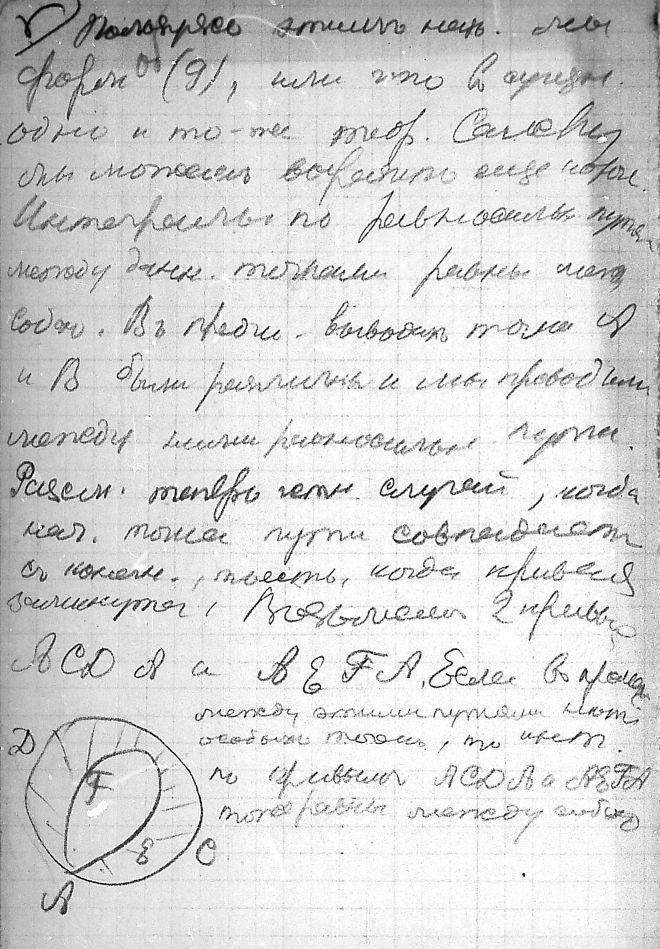 Пользуясь этимъ нач. мы
форм (9), или что въ сущн.
одно и то-же теор. Саvеhу
мы можемъ выразить еще короче.
Интегралы по равносильн. путям
между данн. точками равны межд
собою. Въ предш. выводахъ точки А
и В были различны и мы проводили
между ними равносильн пути.
Рассм. теперь этн. случай, когда
нач. точка пути совпадаетъ
съ конечн., тоесть, когда кривая
замкнута, Возьмемъ 2 кривыя
ACDA и AEFA, Если въ пром
между этими путями нѣтъ
особыхъ точекъ, то инт.
по кривымъ ACDA и AEFA
тоже равны между собою
D
F
E
C
A